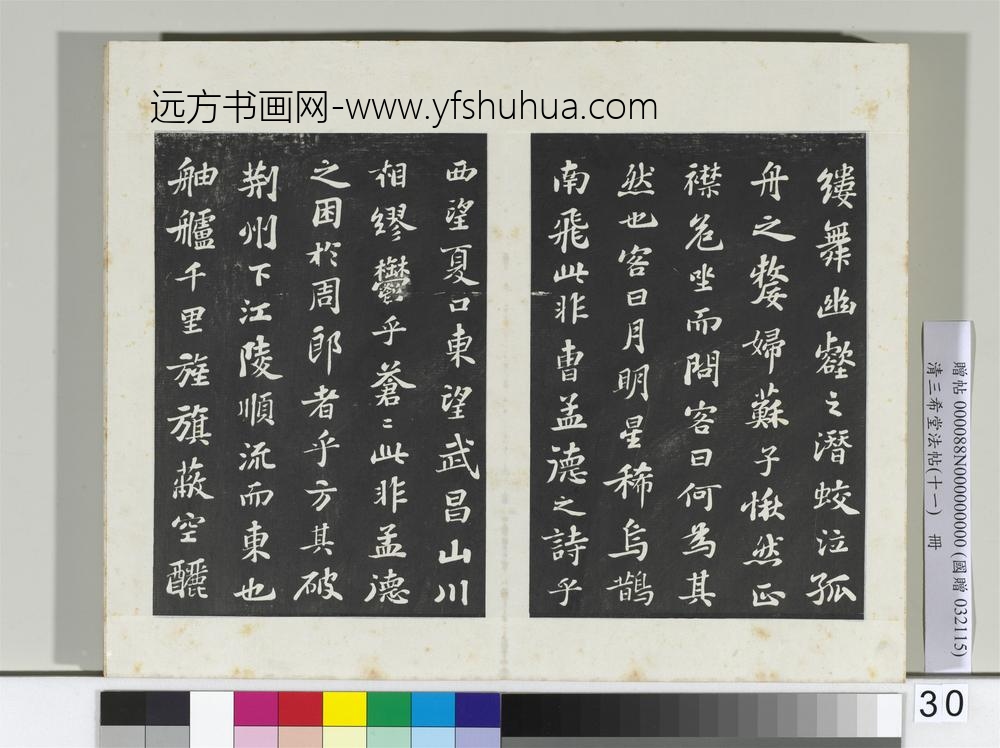 远方书画网-www.yfshuhua.com
縷舞幽壑之潛蛟泣孤
舟之嫠婦蘇子愀然正
襟危坐而問客曰何為其
然也客曰月明星稀烏鵲
南飛此非曹孟德之詩乎
西望夏口東望武昌山川
相繆鬱乎蒼〻此非孟德
之困於周郎者乎方其破
荆州下江陵順流而東也
舳艫千里旌旗蔽空釃
贈帖 000088N000000000 (國贈 032115)
清三希堂法帖(十一) 冊
30